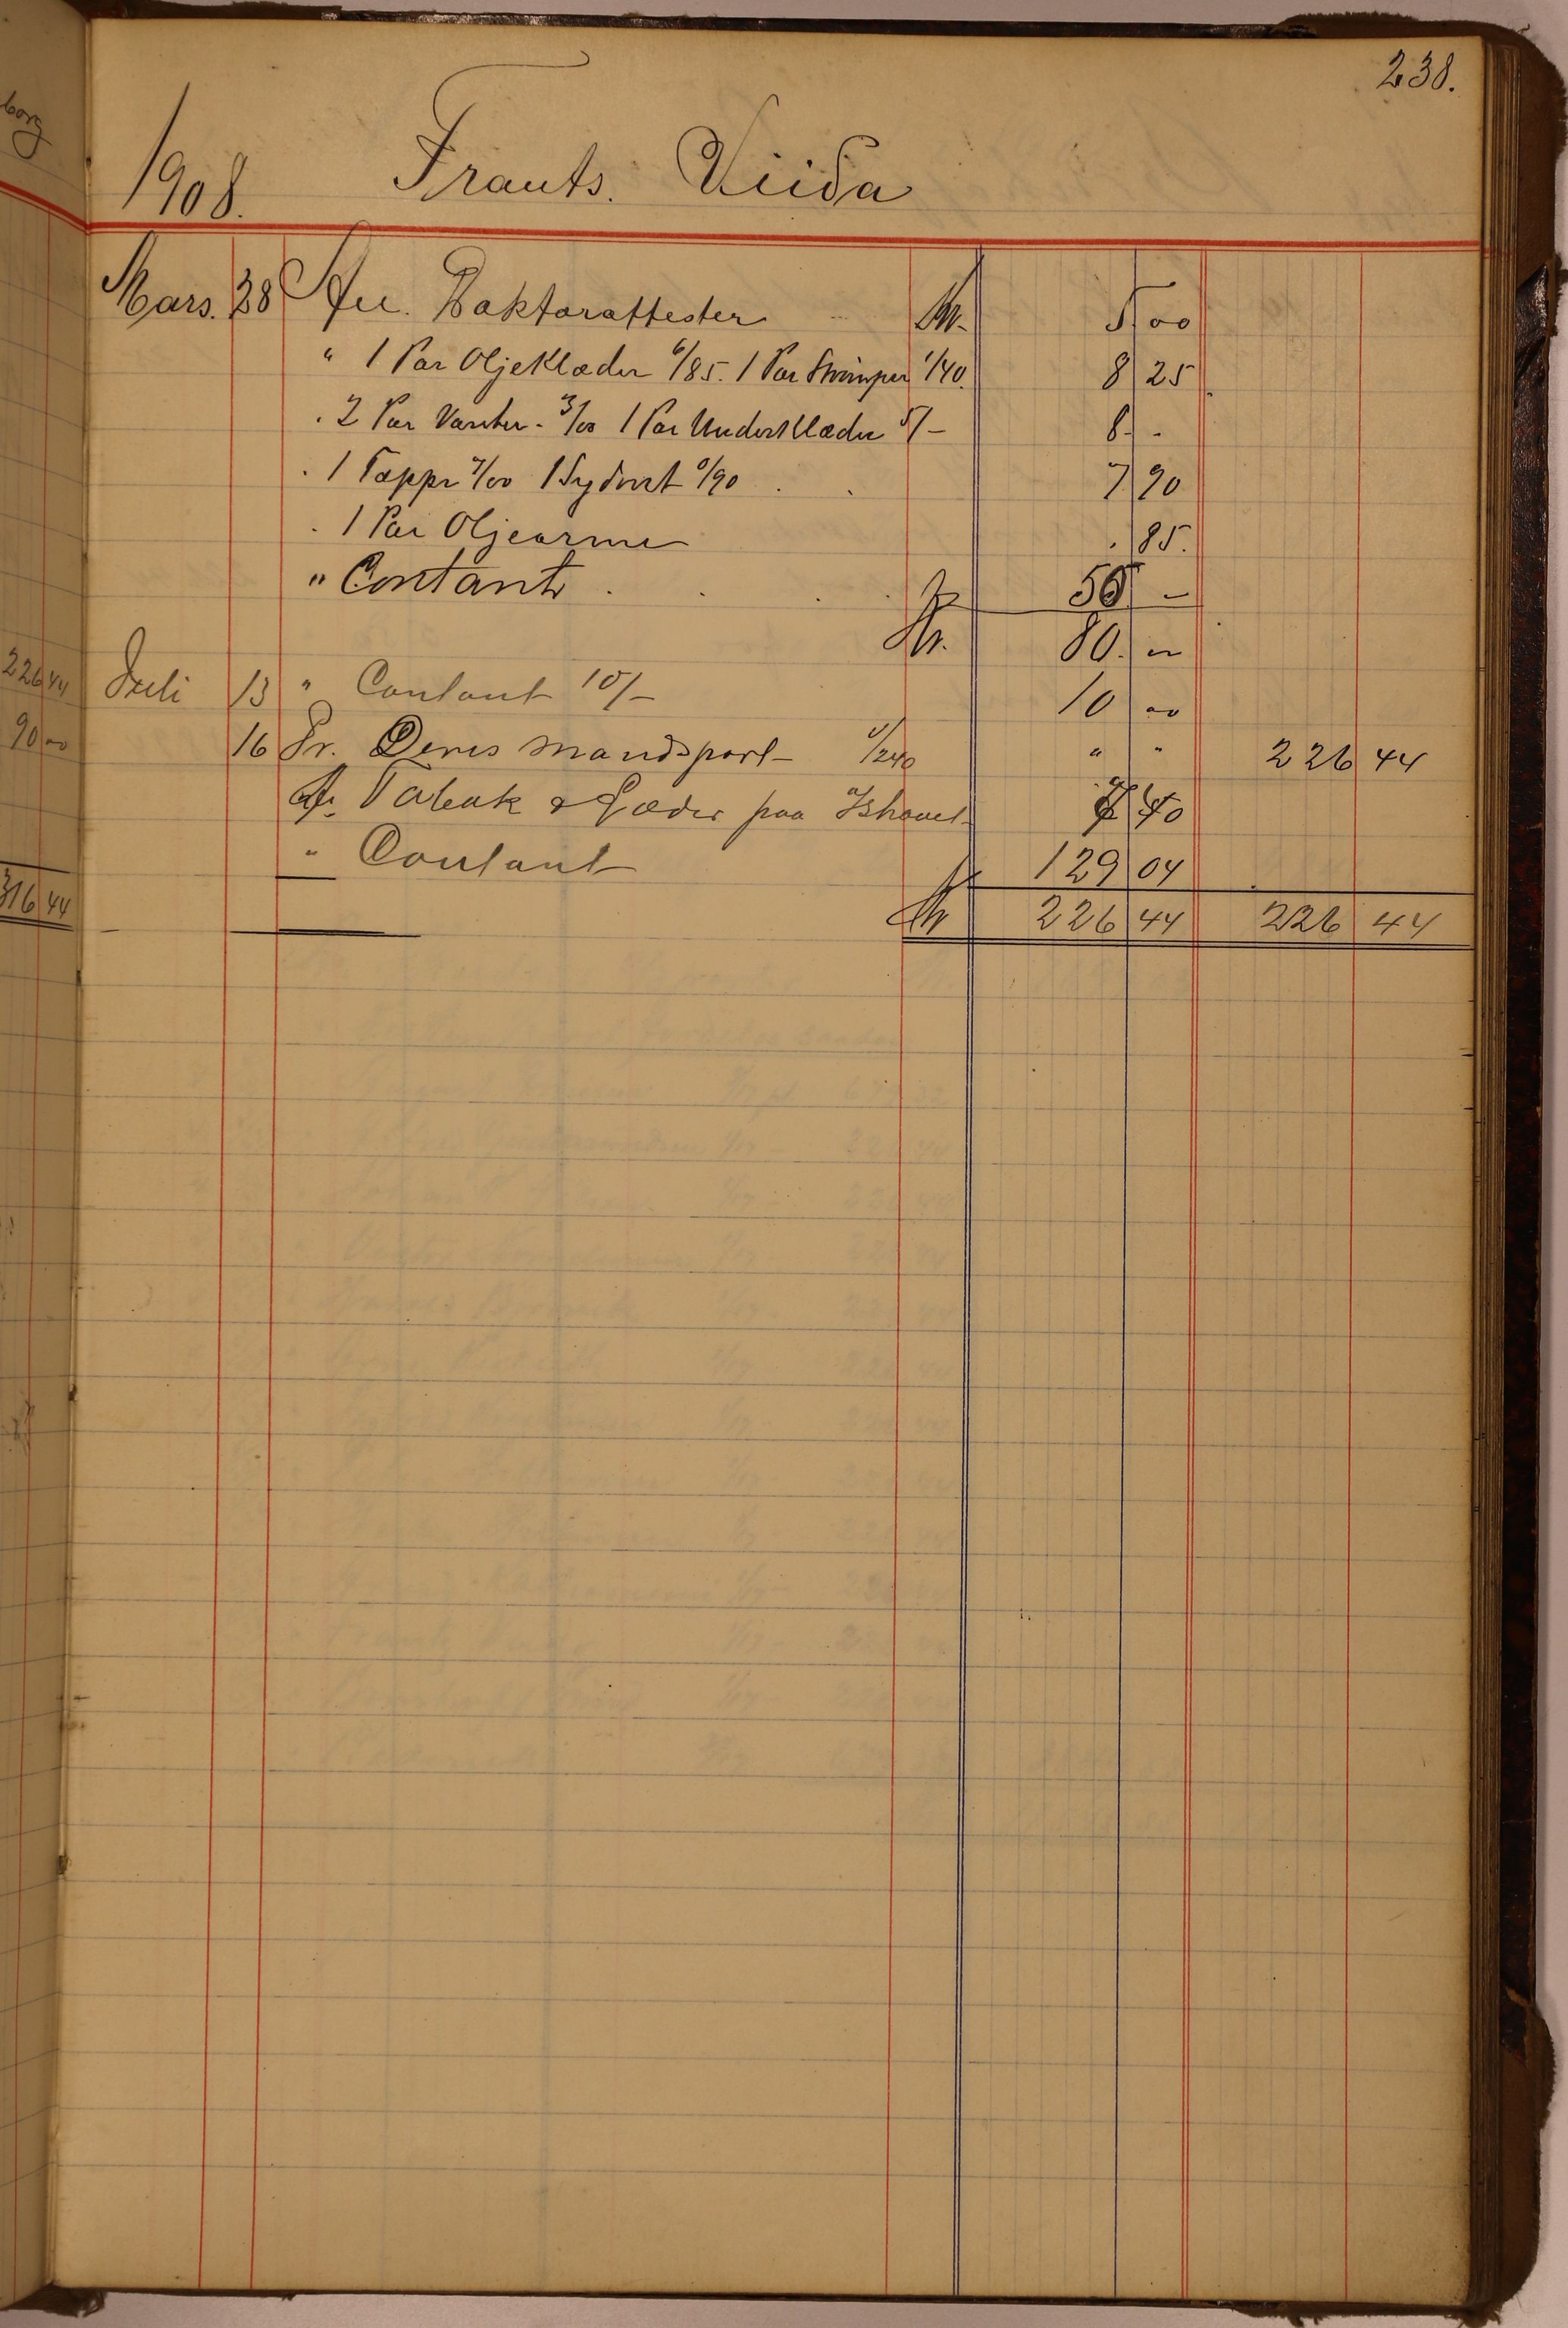 238.
1908. Frants. Viida
Mars. 28 An. Doktorattester Kr. 5 00
" 1 Par Oljeklæder 6/85. 1 Par Strømper 1/40. 8 25
. 2 Par Vanter - 3/00 1 Par Underklæder 5/- 8 -
. 1 Tæppe 7/00 1 Sydvest 0/90 . . 7 90
. 1 Par Oljearme . 85.
" Contant . . . . 50 -
Kr. 80. 00
Juli 13 " Contant 10/- 10 00
16 Pr. Deres Mandspart 1/240 " " 226 44
An Tabak & paa Ishavet 7 40
" Contant 129 04
Kr 226 44 226 44
borg
226 44
90 00
316 44